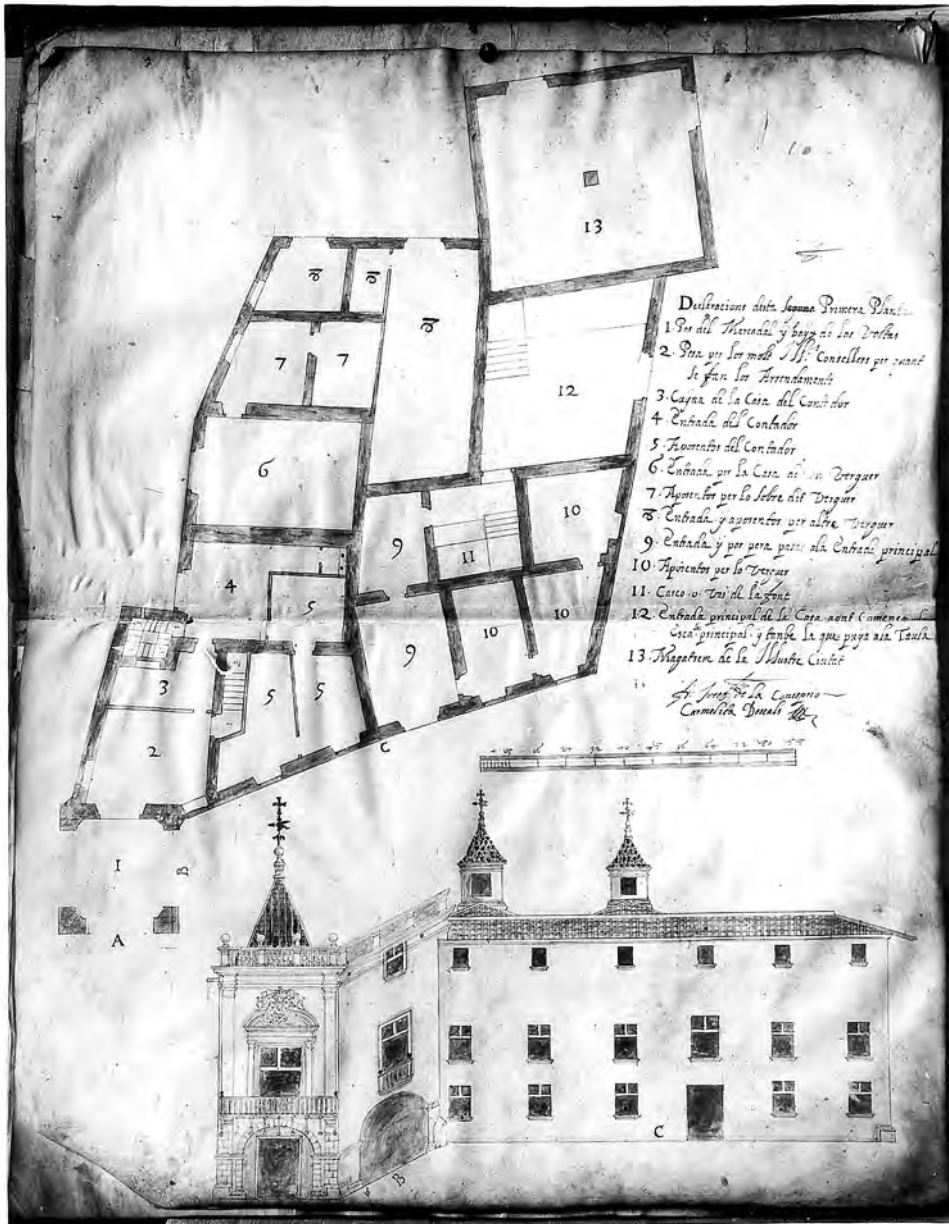 13
8
8
8
7
7
12
6
10
9
11
4
5
10
10
9
3
5
5
2
C
I
B
A
Declaracions desta Primera Planta
1. Pas del Mercadal y baix de las Voltas
2. Pesa per los molt Ill.es Consellers per quant
se fan los Arrendaments
3. Cuyna de la Casa del Contador
4. Entrada del Contador
5. Aposentos del Contador
6. Entrada per la Casa de un Verguer
7. Aposentos per lo sobre dit Verguer
8. Entrada y aposentos per altre Verguer
9. Entrada y pas pera pasar ala Entrada principal
10. Aposentos per lo Verguer
11. de la font
12. Entrada principal de la Casa aont Comensa la
Esca principal y tanbe la que puya ala Taula
13. Magatzem de la Illustre Ciutat
Fr. Josep de la Concepcio
Carmelita Descals
C
B